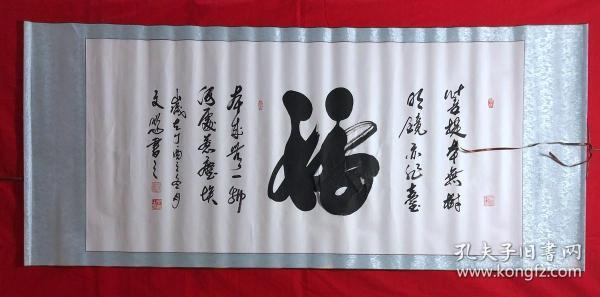 菩提本無樹
明鏡亦非臺
福
本来無一物
何處惹塵埃
歲在丁酉之冬月
文鵬書之
孔夫子旧書网
www.kongfz.com